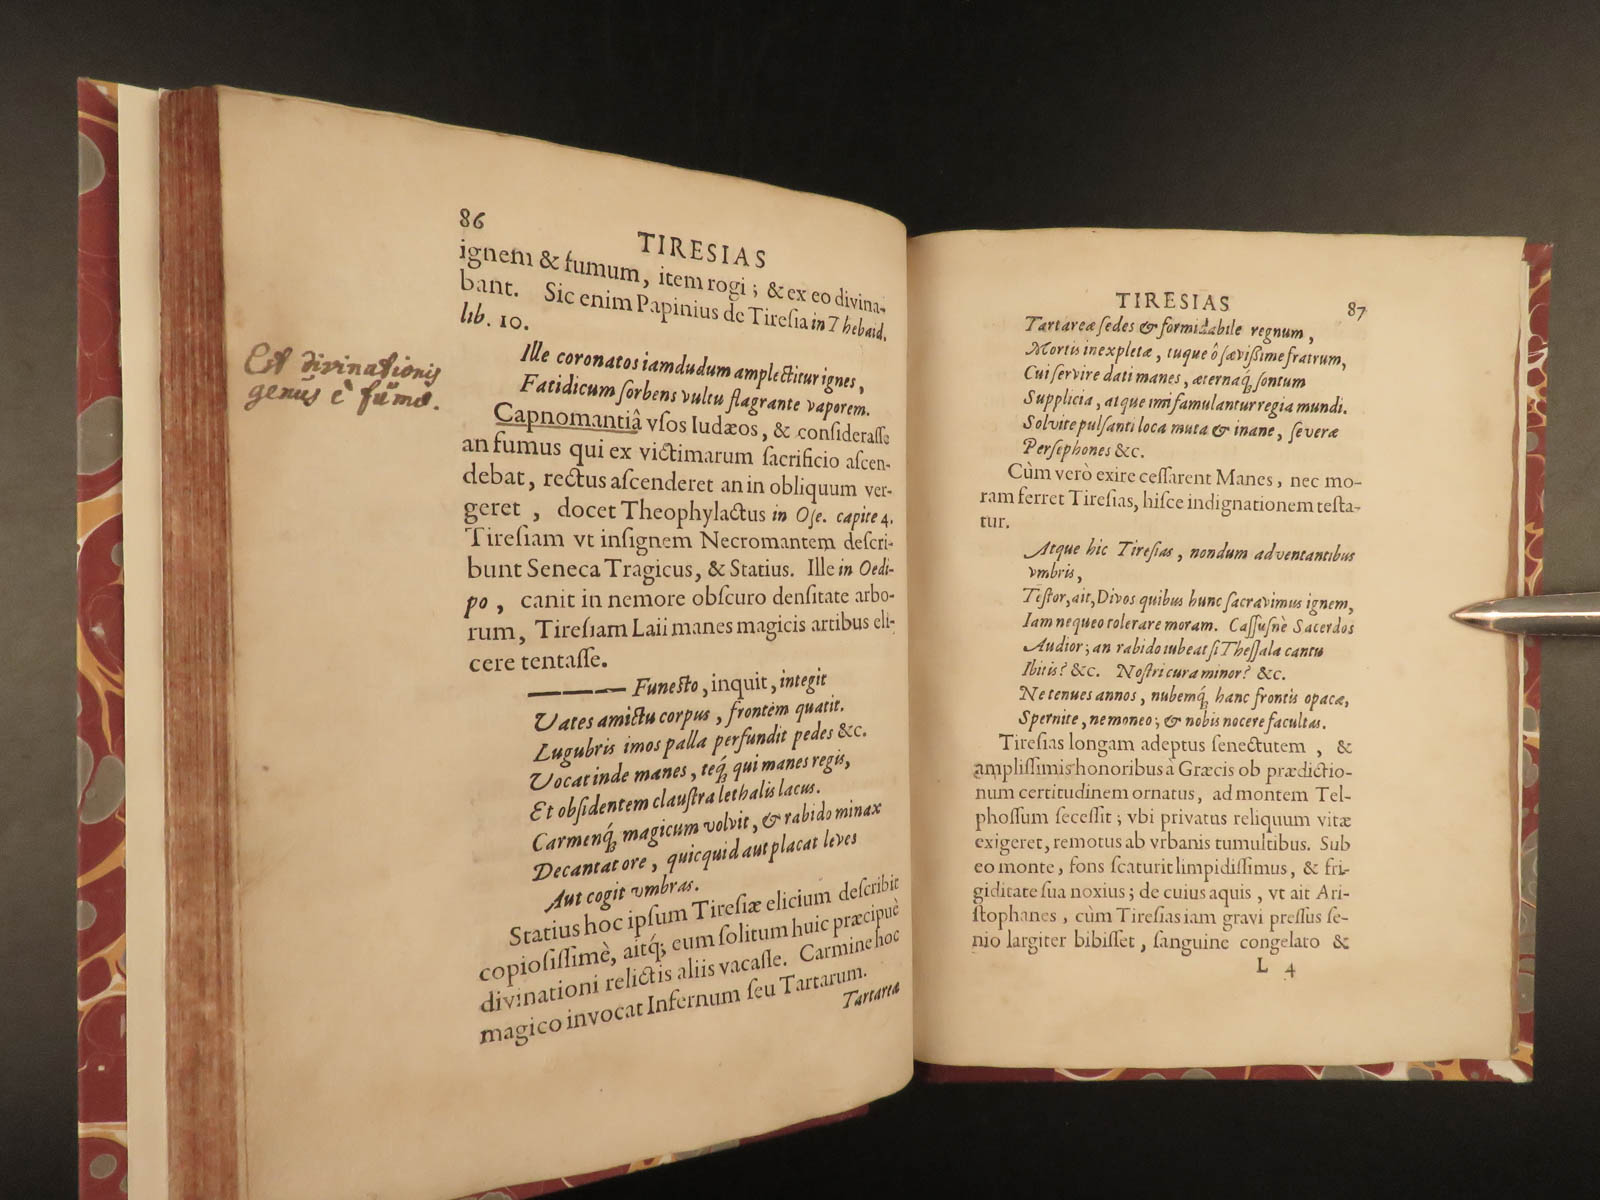 86
TIRESIAS
ignem & fumum, item rogi; & ex eo divina-
bant. Sic enim Papinius de Tiresia in Thebaid.
lib. 10.
Ille coronatos iamdudum amplectitur ignes,
Fatidicum sorbens vultu flagrante vaporem.
Est divinationis
genus è fumo.
Capnomantiâ vsos Iudæos, & considerasse
an fumus qui ex victimarum sacrificio ascen-
debat, rectus ascenderet an in obliquum ver-
geret, docet Theophylactus in Ose. capite 4.
Tiresiam vt insignem Necromantem descri-
bunt Seneca Tragicus, & Statius. Ille in Oedi-
po, canit in nemore obscuro densitate arbo-
rum, Tiresiam Laii manes magicis artibus eli-
cere tentasse.
————— Funesto, inquit, integit
Vates amictu corpus, frontem quatit.
Lugubris imos palla perfundit pedes &c.
Vocat inde manes, teq́; qui manes regis,
Et obsidentem claustra lethalis lacus.
Carmenq́; magicum volvit, & rabido minax
Decantat ore, quicquid aut placat leves
Aut cogit vmbras.
Statius hoc ipsum Tiresiæ elicium describit
copiosissimè, aitq́; eum solitum huic præcipuè
divinationi relictis aliis vacasse. Carmine hoc
magico invocat Infernum seu Tartarum.
Tartareæ
TIRESIAS
87
Tartareæ sedes & formidabile regnum,
Mortis inexpletæ, tuque ô sævissime fratrum,
Cui servire dati manes, æternaq́; sontum
Supplicia, atque imi famulantur regia mundi.
Solvite pulsanti loca muta & inane, severæ
Persephones &c.
Cùm verò exire cessarent Manes, nec mo-
ram ferret Tiresias, hisce indignationem testa-
tur.
Atque hic Tiresias, nondum adventantibus
vmbris,
Testor, ait, Divos quibus hunc sacravimus ignem,
Iam nequeo tolerare moram. Cassusnè Sacerdos
Audior; an rabido iubeat si Thessala cantu
Ibitis? &c. Nostri cura minor? &c.
Ne tenues annos, nubemq́; hanc frontis opacæ,
Spernite, ne moneo; & nobis nocere facultas.
Tiresias longam adeptus senectutem, &
amplissimis honoribus à Græcis ob prædictio-
num certitudinem ornatus, ad montem Tel-
phossum secessit; vbi privatus reliquum vitæ
exigeret, remotus ab vrbanis tumultibus. Sub
eo monte, fons scaturit limpidissimus, & fri-
giditate sua noxius; de cuius aquis, vt ait Ari-
stophanes, cùm Tiresias iam gravi pressus se-
nio largiter bibisset, sanguine congelato &
L 4